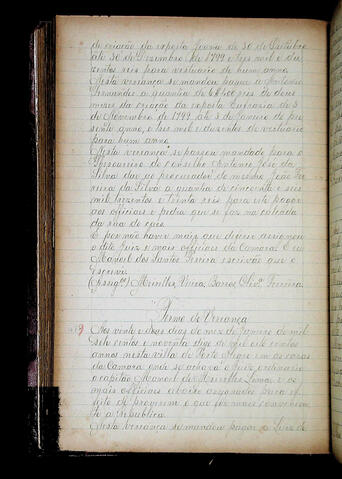 de criação da exposta Joanna de 30 de Outubro
até 30 de Dezembro de 1799 e seis mil e du-
zentos reis para vestuario de hum anno.
Nesta veriança se mandou pagar a Antonia
Fernandes a quantia de 6$400 reis de dous
mezes da criação da exposta Eufrasia de 3
de Novembro de 1799 até 3 de Janeiro do pre-
sente anno, e seis mil e duzentos de vestuario
para hum anno.
Nesta veriança se passou mandado para o
Thesoureiro do conselho Antonio José da
Silva dar ao procurador do mesmo João Fer-
reira da Silva a quantia de cincoenta e seis
mil trezentos e trinta reis para este pagar
aos officiaes e pedra que se fas na calçada
da rua do caes.
E por não haver mais que dizer assignou
o dito Juiz e mais officiaes da Camara. Eu
Manoel dos Santos Pereira escrivão que o
Escrevi.
(Assigº) Meirelles, Barros, Ferreira.
Termo de Veriança
Aos vinte e dous dias do mez de Janeiro de mil
sete centos e noventa digo de mil oito centos
annos nesta villa de Porto Alegre em as cazas
da Camara onde se achava o Juiz ordinario
o capitão Manoel de Meirelles e os
mais officiaes abaixo assignados para ef-
feito de proverem o que for mais convenien-
te a republica.
Nesta veriança se mandou pagar a Luiz de